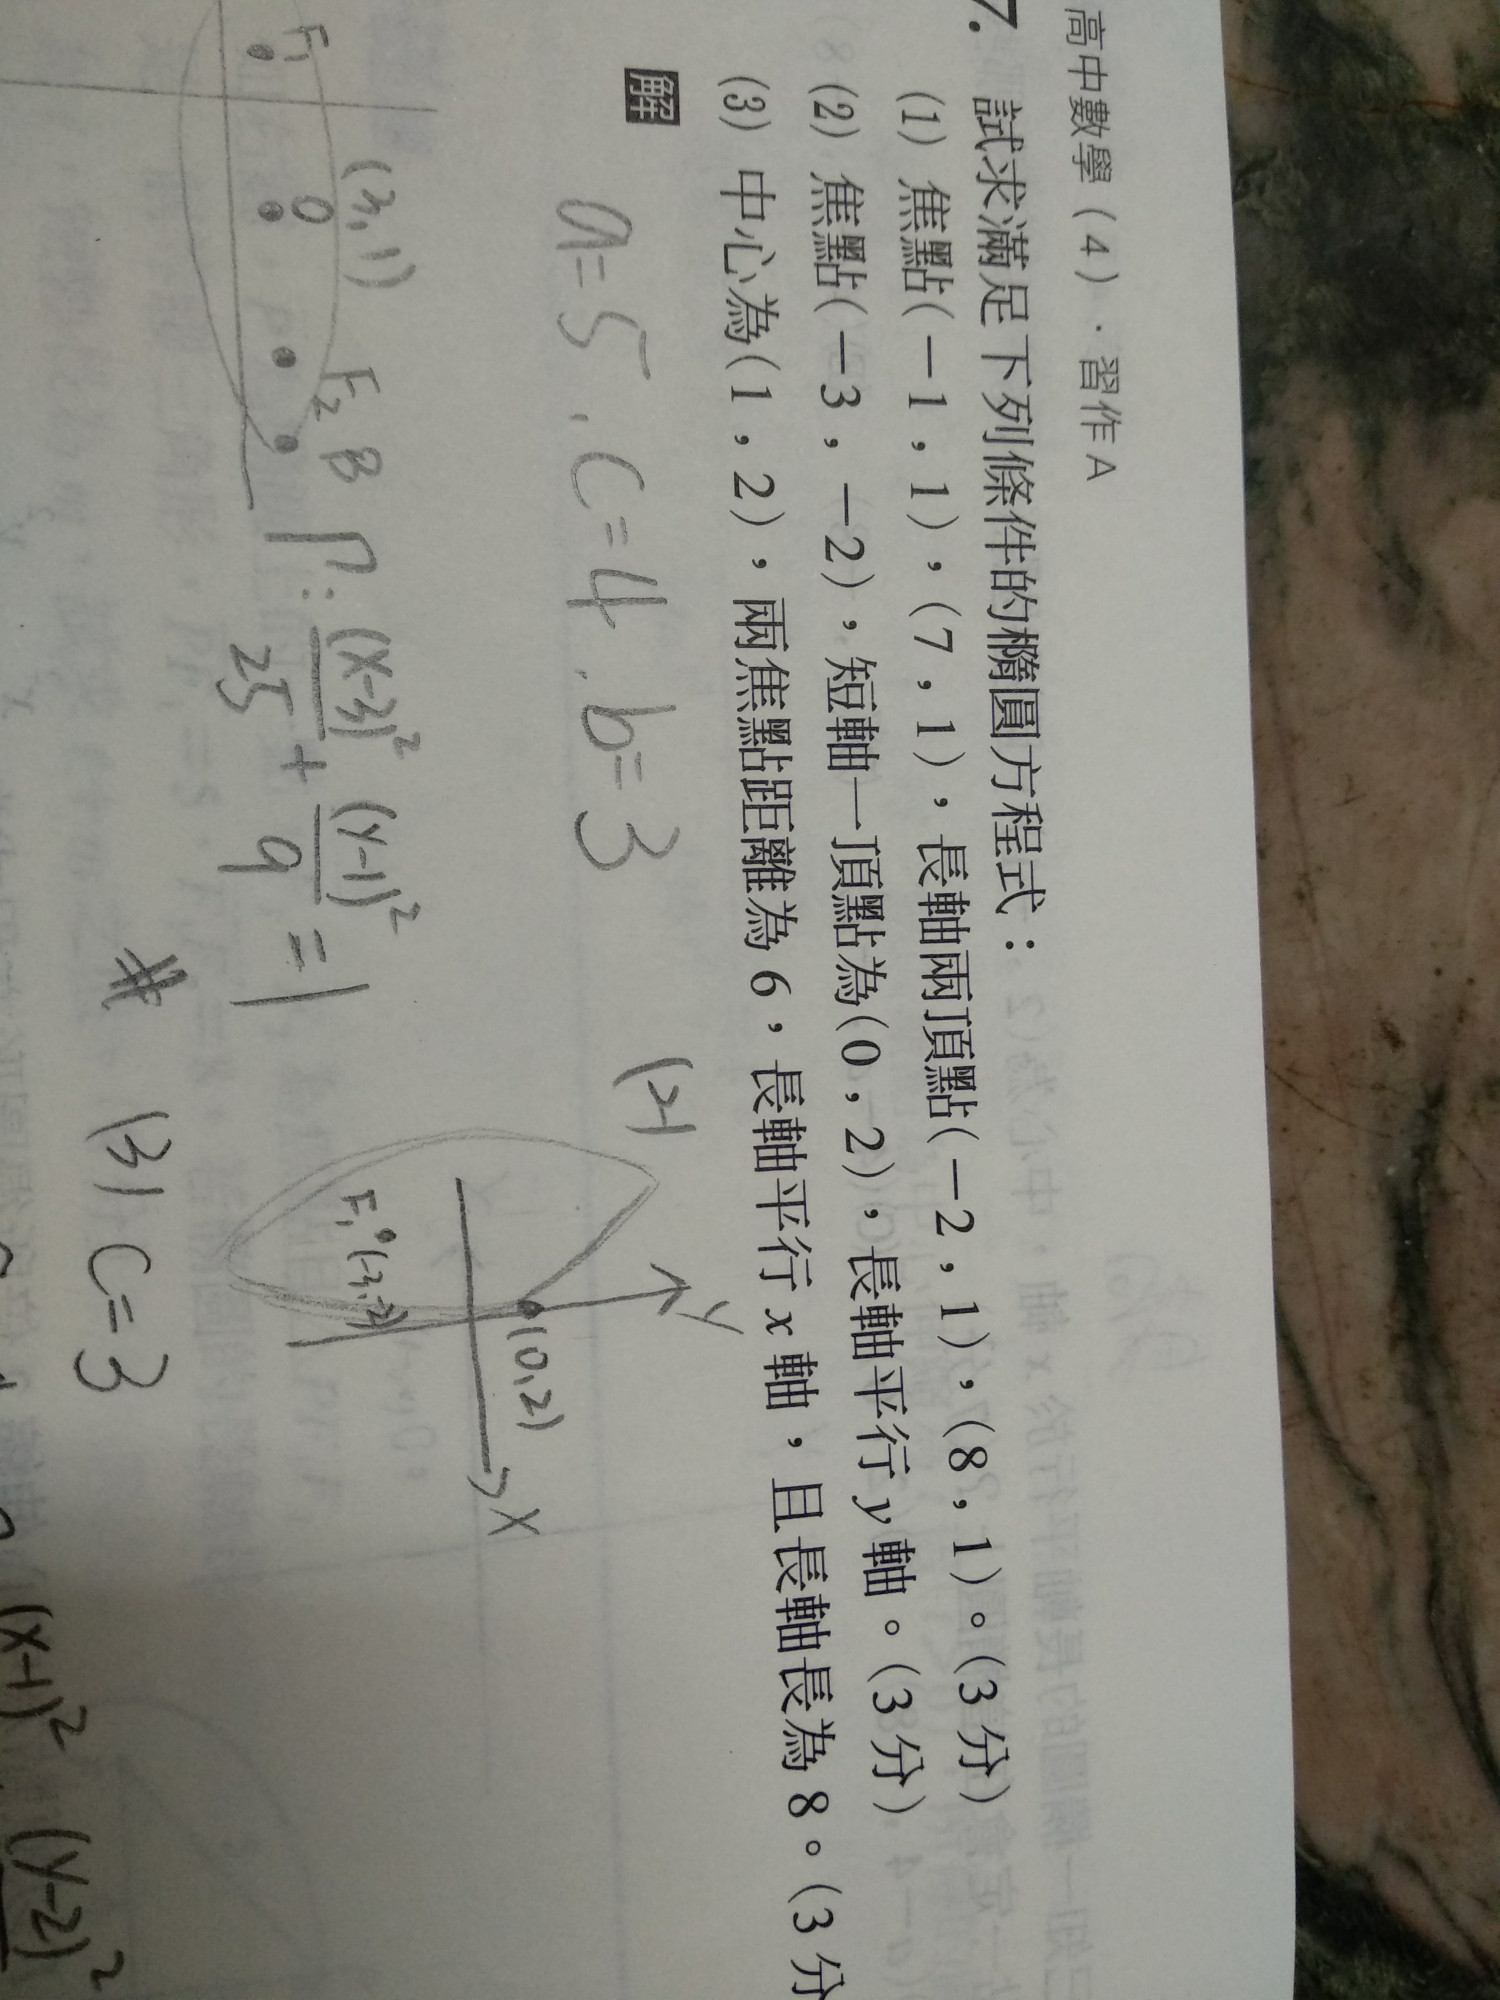 高中數學(4)．習作A
7. 試求滿足下列條件的橢圓方程式：
(1) 焦點(－1,1),(7,1),長軸兩頂點(－2,1),(8,1)。(3分)
(2) 焦點(－3,－2),短軸一頂點為(0,2),長軸平行y軸。(3分)
(3) 中心為(1,2),兩焦點距離為6,長軸平行x軸,且長軸長為8。(3分
解
a=5, c=4, b=3
(2)
y
(0,2)
x
F₁(-3,-2)
(3,1)
F₁ O F₂ B
Γ: (x-3)²/25 + (y-1)²/9 = 1
#
(3) c=3
(x-1)² (y-2)²